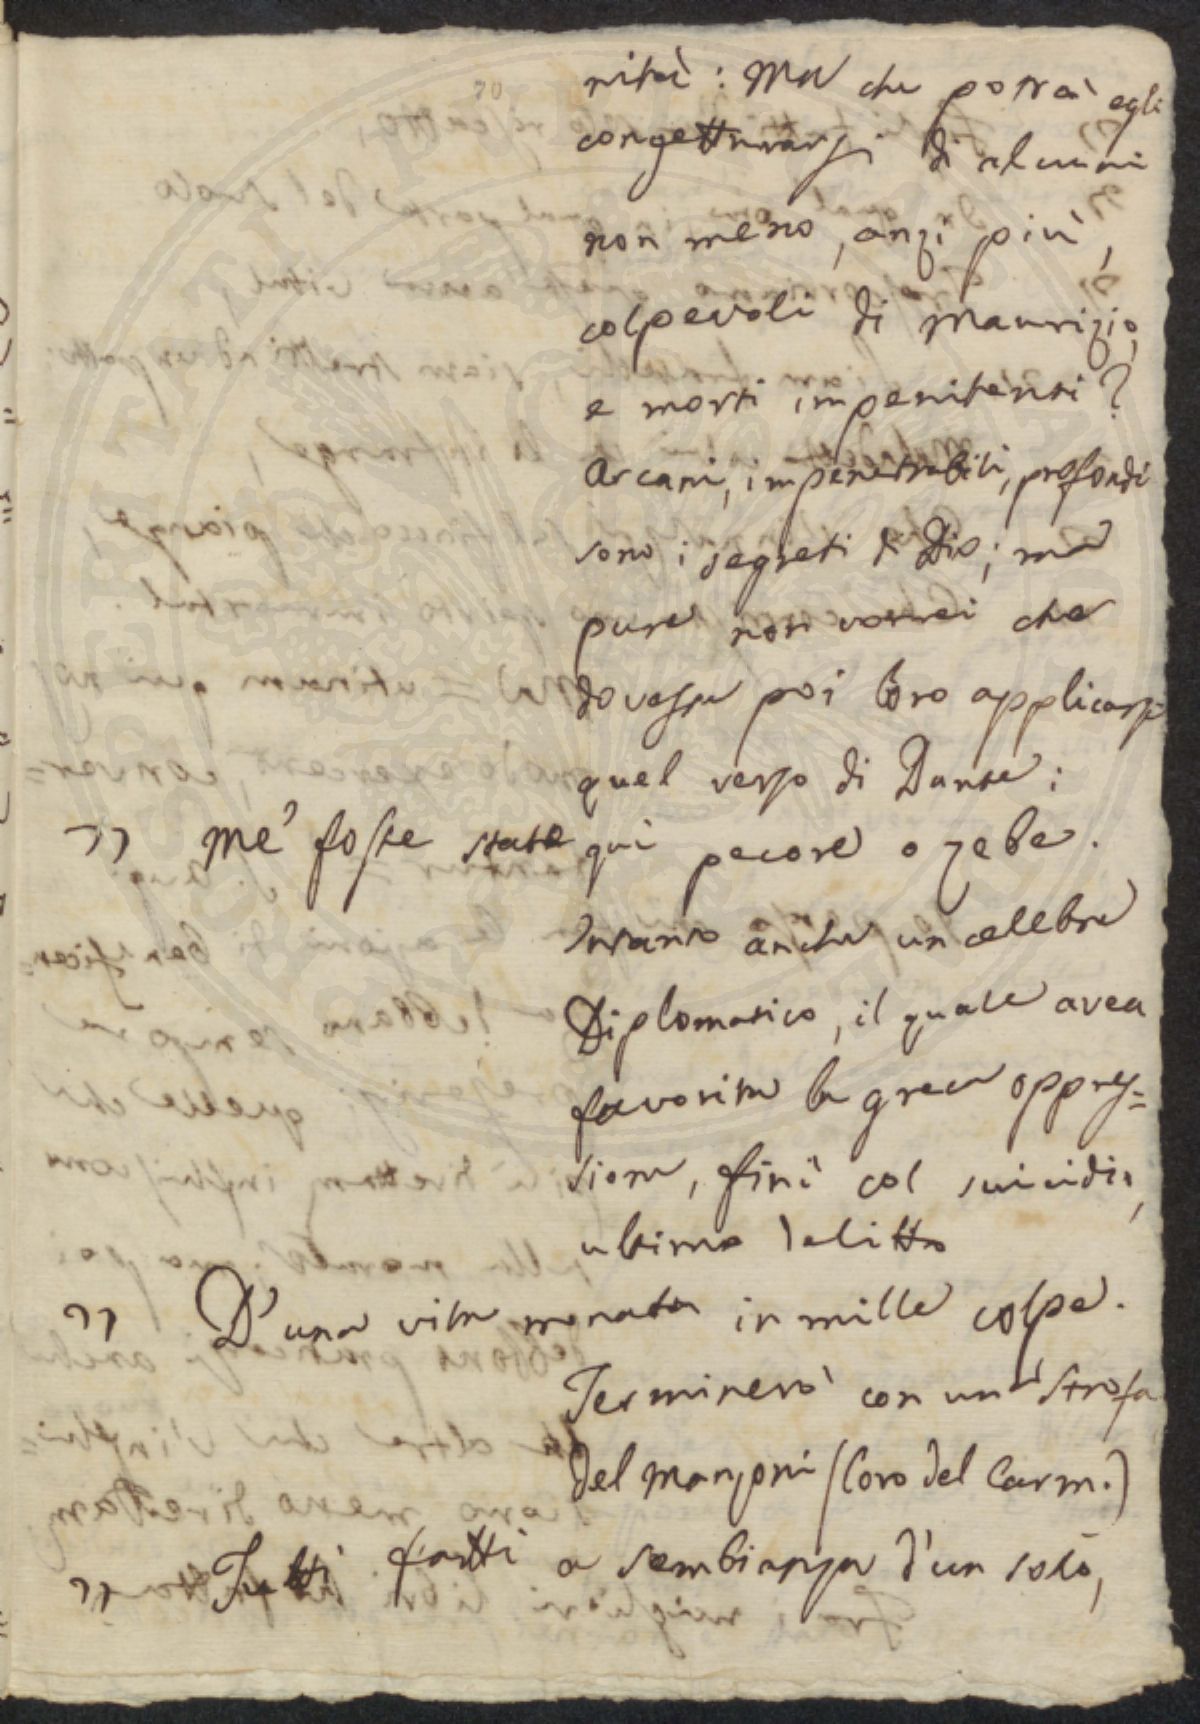 nità: Ma che potrà egli
congetturarsi di alcuni
non meno, anzi più,
colpevoli di Maurizio,
e morti impenitenti?
Arcani, impenetrabili, profondi
sono i segreti di Dio; ma
pure non vorrei che
dovesse poi loro applicarsi
quel verso di Dante:
" Me' foste state qui pecore o zebe.
Intanto anche un celebre
Diplomatico, il quale avea
favorita la greca oppres=
sione, finì col suicidio,
ultimo delitto
" D'una vita menata in mille colpe.
Terminerò con una strofa
del Manzoni (Coro del Carm.)
" Tutti fatti a sembianza d'un solo,